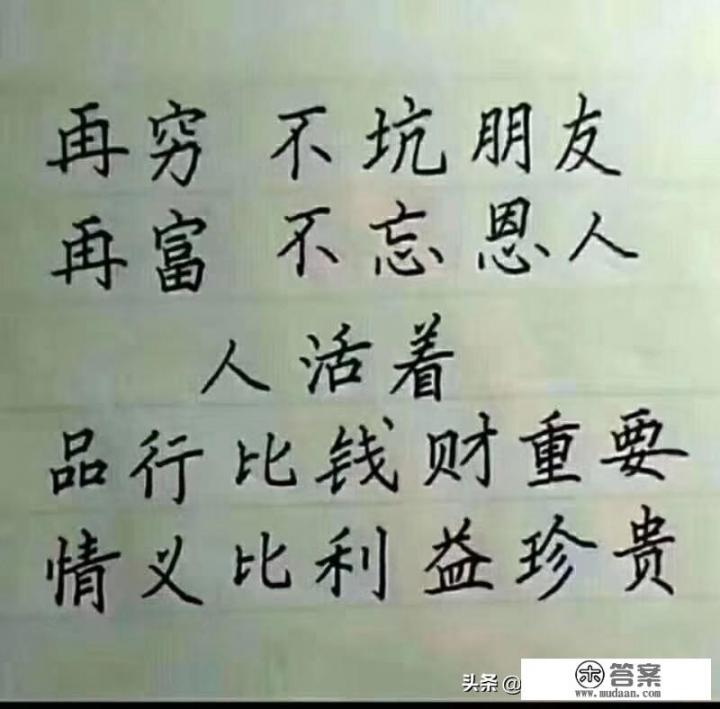 再穷 不坑朋友
再富 不忘恩人
人活着
品行比钱财重要
情义比利益珍贵
头条 @
答案
www.mudaan.com